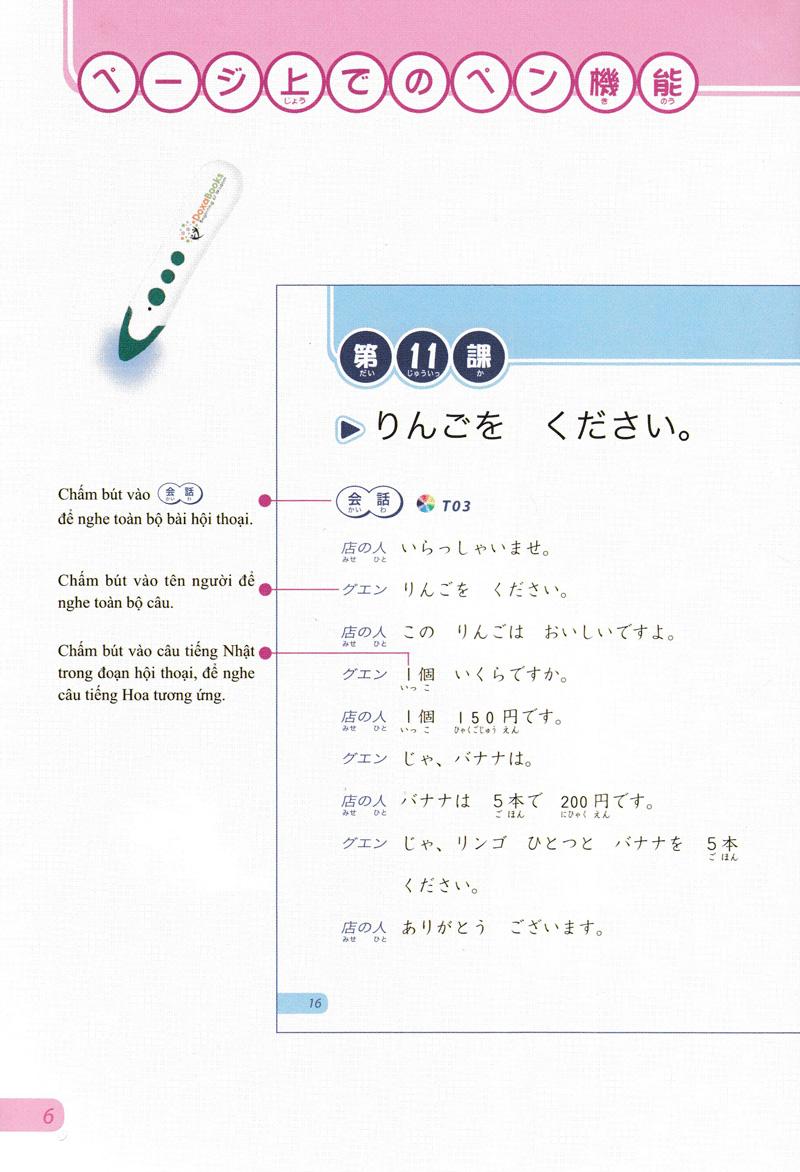 ページ上でのペン機能
じょう き のう
DoxaBooks
第11課
だい じゅういっ か
りんごを ください。
Chấm bút vào 会話
かい わ
để nghe toàn bộ bài hội thoại.
会話 T03
かい わ
店の人 いらっしゃいませ。
みせ ひと
Chấm bút vào tên người để
nghe toàn bộ câu.
グエン りんごを ください。
店の人 この りんごは おいしいですよ。
みせ ひと
Chấm bút vào câu tiếng Nhật
trong đoạn hội thoại, để nghe
câu tiếng Hoa tương ứng.
グエン 1個 いくらですか。
いっ こ
店の人 1個 150円です。
みせ ひと いっ こ ひゃくごじゅう えん
グエン じゃ、バナナは。
店の人 バナナは 5本で 200円です。
みせ ひと ご ほん にひゃく えん
グエン じゃ、リンゴ ひとつと バナナを 5本
ご ほん
ください。
店の人 ありがとう ございます。
みせ ひと
16
6